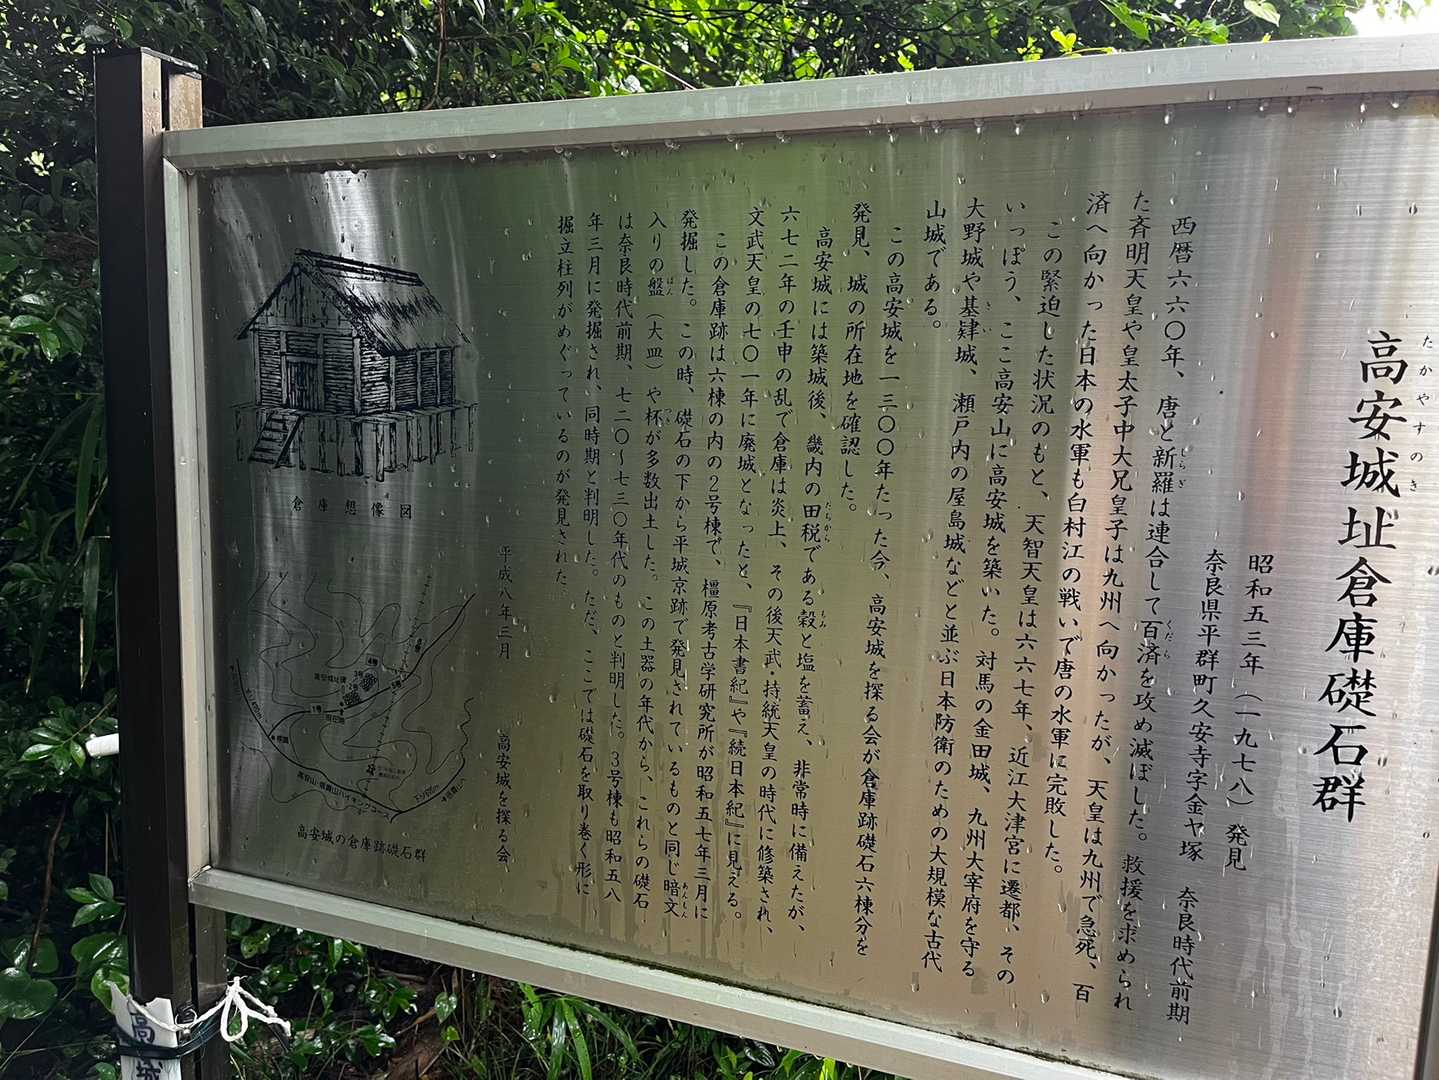 高安城址倉庫礎石群
たかやすのき
昭和五三年(一九七八)発見
奈良県平群町久安寺字金ヤ塚 奈良時代前期
西暦六六〇年、唐と新羅は連合して百済を攻め滅ぼした。救援を求められ
しらぎ
くだら
た斉明天皇や皇太子中大兄皇子は九州へ向かったが、天皇は九州で急死、百
済へ向かった日本の水軍も白村江の戦いで唐の水軍に完敗した。
この緊迫した状況のもと、天智天皇は六六七年、近江大津宮に遷都、その
いっぽう、ここ高安山に高安城を築いた。対馬の金田城、九州大宰府を守る
大野城や基肄城、瀬戸内の屋島城などと並ぶ日本防衛のための大規模な古代
きい
山城である。
この高安城を一三〇〇年たった今、高安城を探る会が倉庫跡礎石六棟分を
発見、城の所在地を確認した。
高安城には築城後、畿内の田税である穀と塩を蓄え、非常時に備えたが、
たちから
もみ
六七二年の壬申の乱で倉庫は炎上、その後天武・持統天皇の時代に修築され、
文武天皇の七〇一年に廃城となったと、『日本書紀』や『続日本紀』に見える。
この倉庫跡は六棟の内の2号棟で、橿原考古学研究所が昭和五七年三月に
発掘した。この時、礎石の下から平城京跡で発見されているものと同じ暗文
あんもん
入りの盤(大皿)や杯が多数出土した。この土器の年代から、これらの礎石
ばん
つき
は奈良時代前期、七二〇〜七三〇年代のものと判明した。3号棟も昭和五八
年三月に発掘され、同時期と判明した。ただ、ここでは礎石を取り巻く形に
掘立柱列がめぐっているのが発見された。
平成八年三月 高安城を探る会
倉庫想像図
6号
4号
5号
3号
2号
1号
高安城址碑
現在地
高安山・信貴山ハイキングコース
高安城の倉庫跡礎石群
高安城